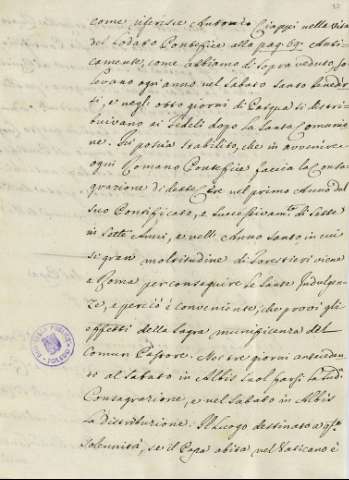 come riferisce Antonio Ciappi nella vita
del lodato Pontefice alla pag. 69. Anti-
camente, come abbiamo di sopra veduto, so-
levano ogni anno nel Sabato Santo benedir-
si, e negli otto giorni di Pasqua si distri-
buivano ai Fedeli dopo la Santa Comunio-
ne. Fu poscia stabilito, che in avvenire
ogni Romano Pontefice faccia la Consa-
grazione di dette Cere nel primo Anno del
suo Pontificato, e successivamte. di Sette
in Sette Anni, e nell' Anno Santo, in cui
si gran moltitudine di Forestieri viene
a Roma per conseguire le Sante Indulgen-
ze, e perciò è conveniente, che provi gli
effetti della Sagra munificenza del
Comun Pastore. Nei tre giorni anteceden-
ti al Sabato in Albis suol farsi la sudda.
Consagrazione, e nel Sabato in Albis
la distribuzione. Il Luogo destinato a qta.
Solennità, se il Papa abita nel Vaticano è